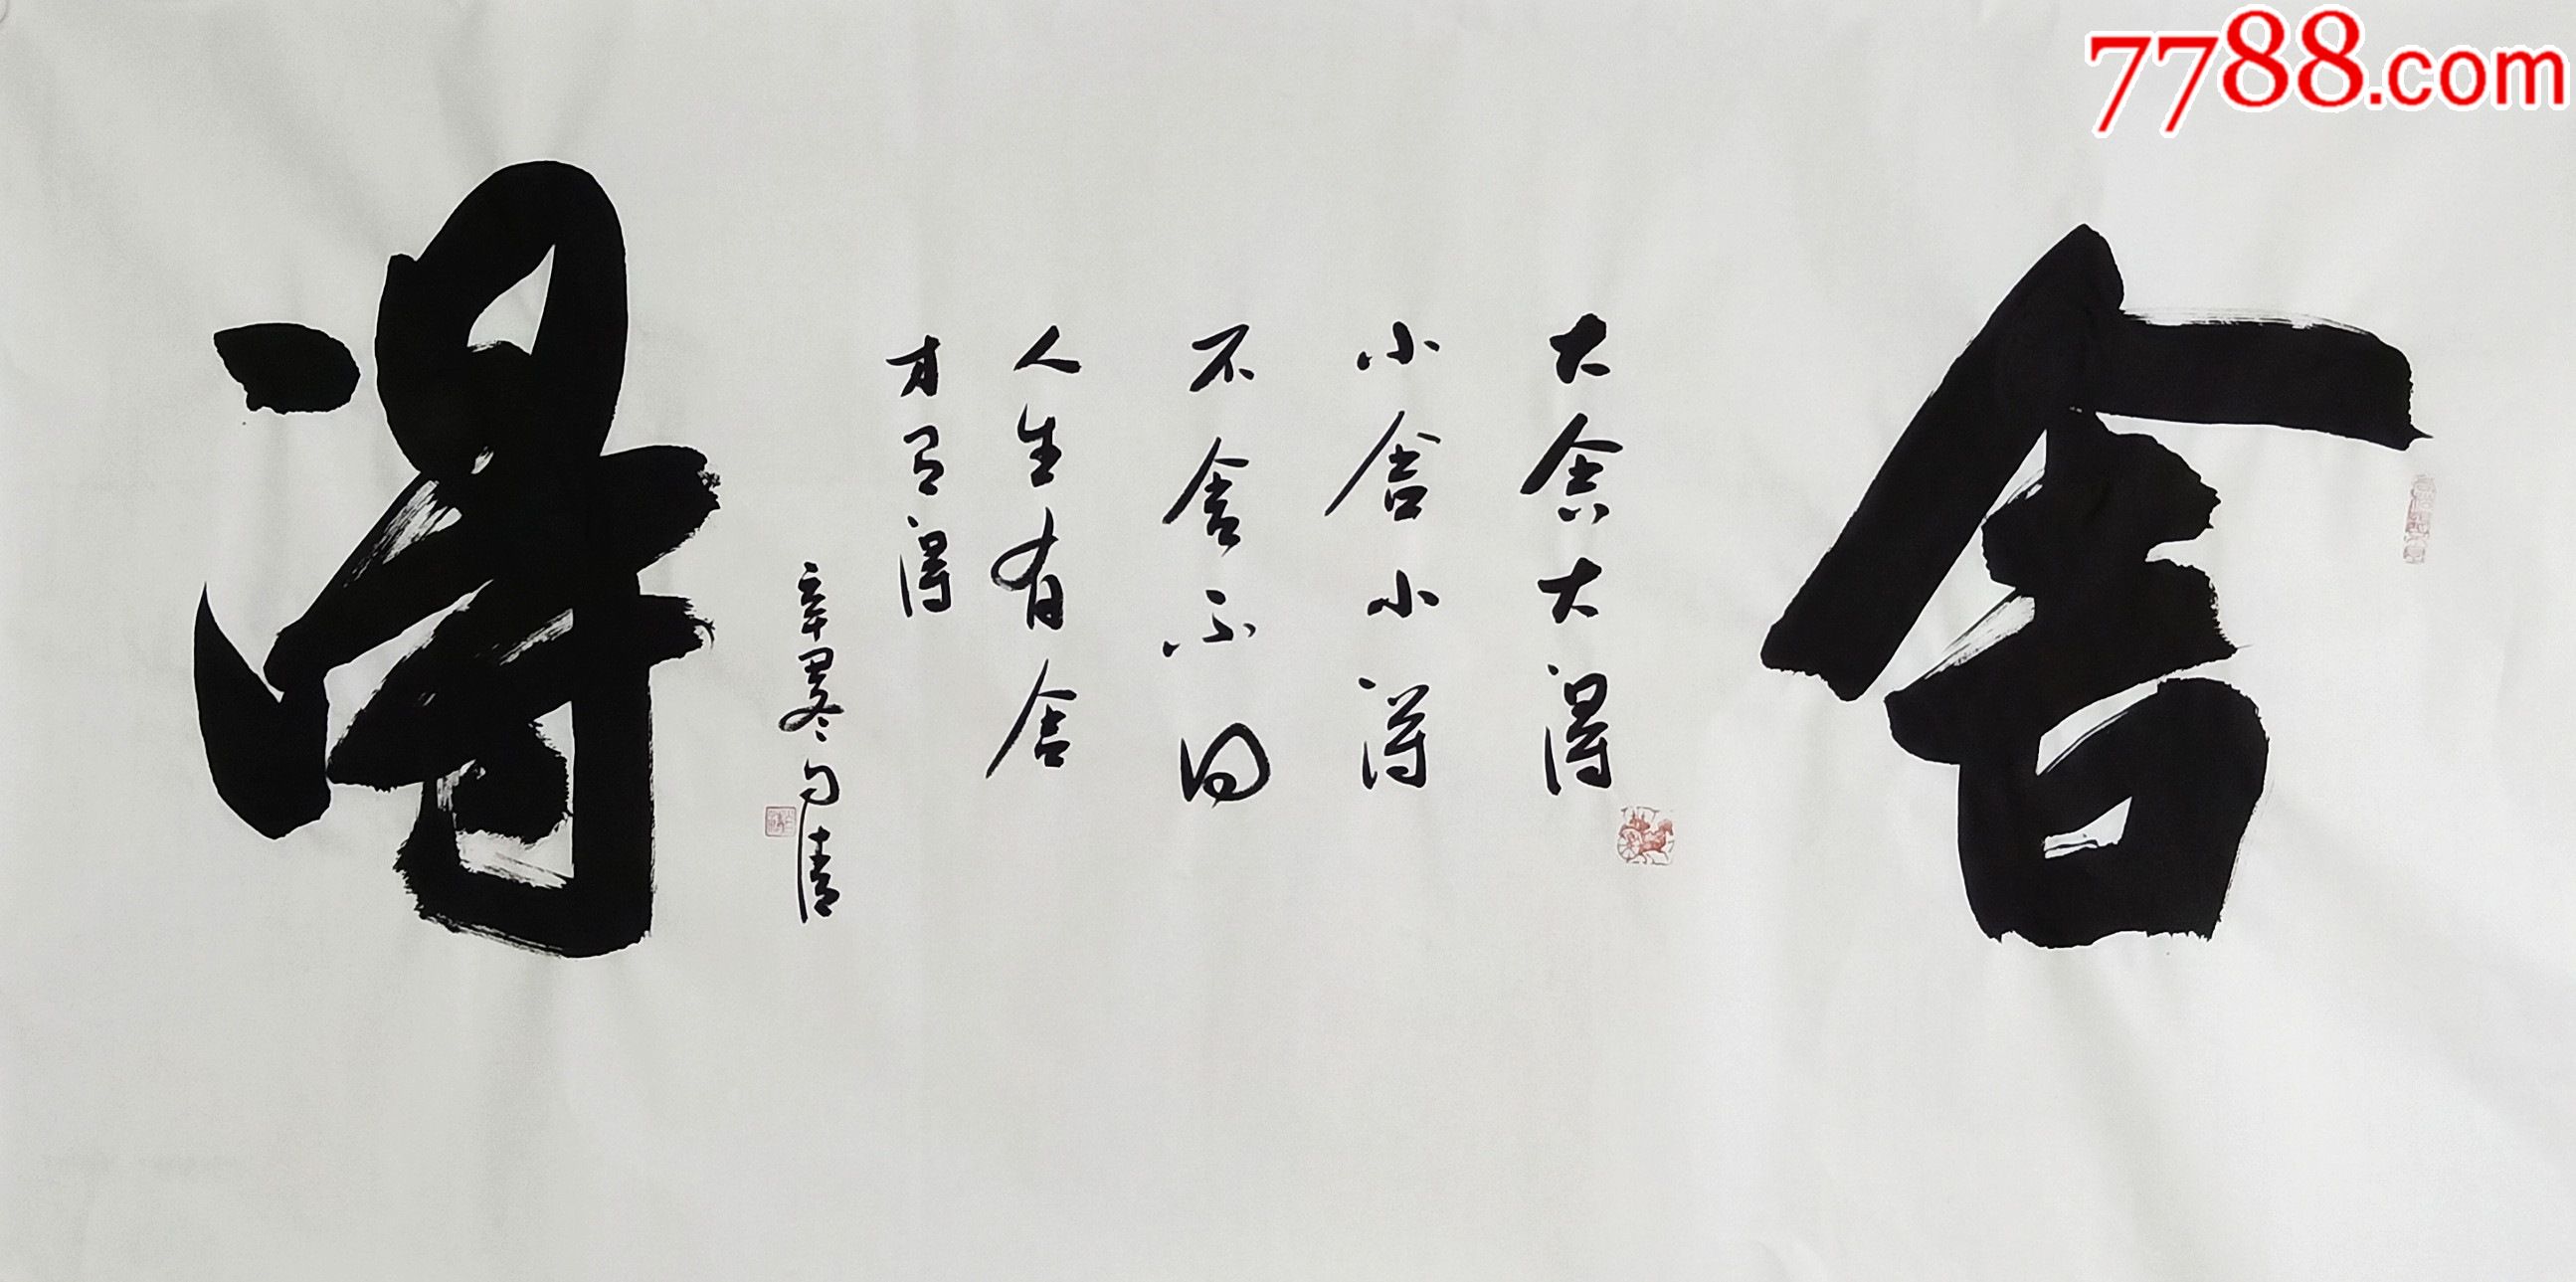 舍
大舍大得
小舍小得
不舍不得
人生有舍
才有得
辛丑冬月清
得
7788.com